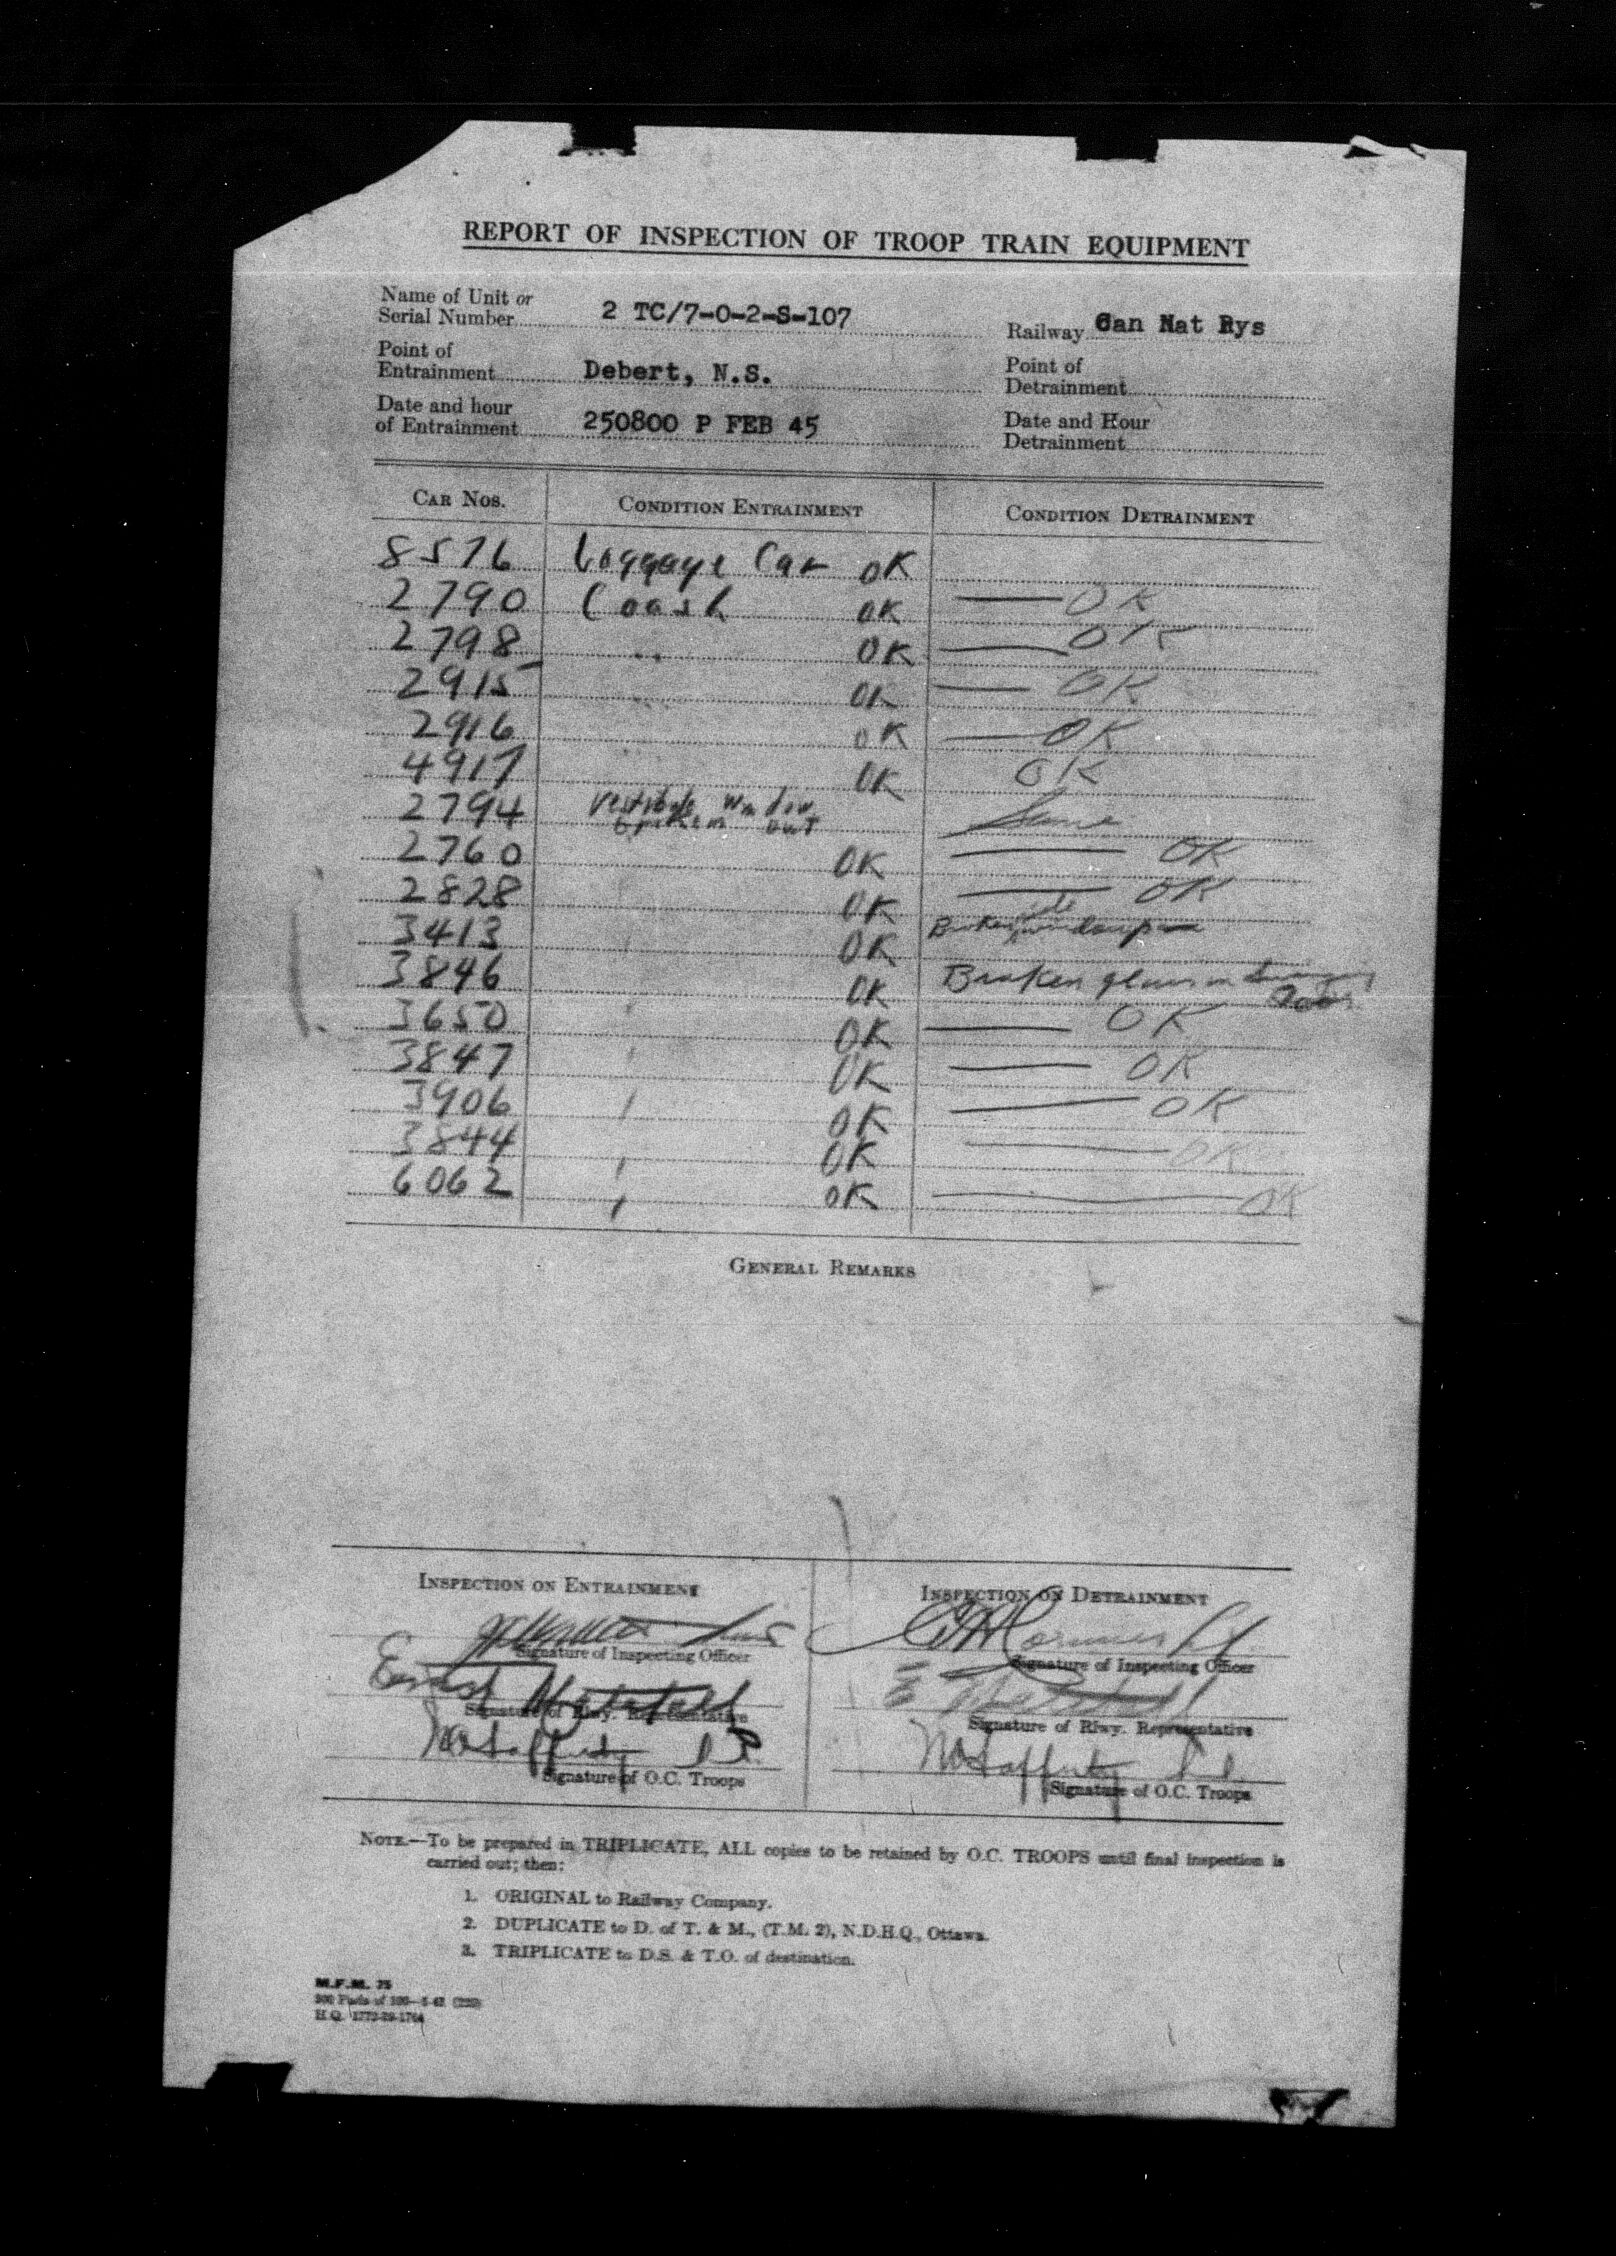 REPORT OF INSPECTION OF TROOP TRAIN EQUIPMENT
Name of Unit or
Serial Number 2 TC/7-0-2-S-107 Railway Can Nat Rys
Point of
Entrainment Debert, N.S. Point of Detrainment
Date and hour
of Entrainment 250800 P FEB 45 Date and Hour Detrainment
CAR NOS. CONDITION ENTRAINMENT CONDITION DETRAINMENT
8576 Luggage Car OK
2790 Coach OK — OK
2798 " OK — OK
2915 " OK — OK
2916 " OK — OK
4917 OK OK
2794 Vestibule Window broken out Same
2760 OK — OK
2828 OK — OK
3413 OK Broken side window pane
3846 OK Broken glass in door
3650 OK — OK
3847 OK — OK
3906 OK — OK
3844 OK — OK
6062 OK — OK
GENERAL REMARKS
INSPECTION ON ENTRAINMENT INSPECTION ON DETRAINMENT
Signature of Inspecting Officer Signature of Inspecting Officer
Ernest
Signature of Rlwy. Representative Signature of Rlwy. Representative
Signature of O.C. Troops Signature of O.C. Troops
NOTE.—To be prepared in TRIPLICATE, ALL copies to be retained by O.C. TROOPS until final inspection is
carried out; then:
1. ORIGINAL to Railway Company.
2. DUPLICATE to D. of T. & M., (T.M. 2), N.D.H.Q., Ottawa.
3. TRIPLICATE to D.S. & T.O. of destination.
M.F.M. 75
H.Q. 1772-39-1764